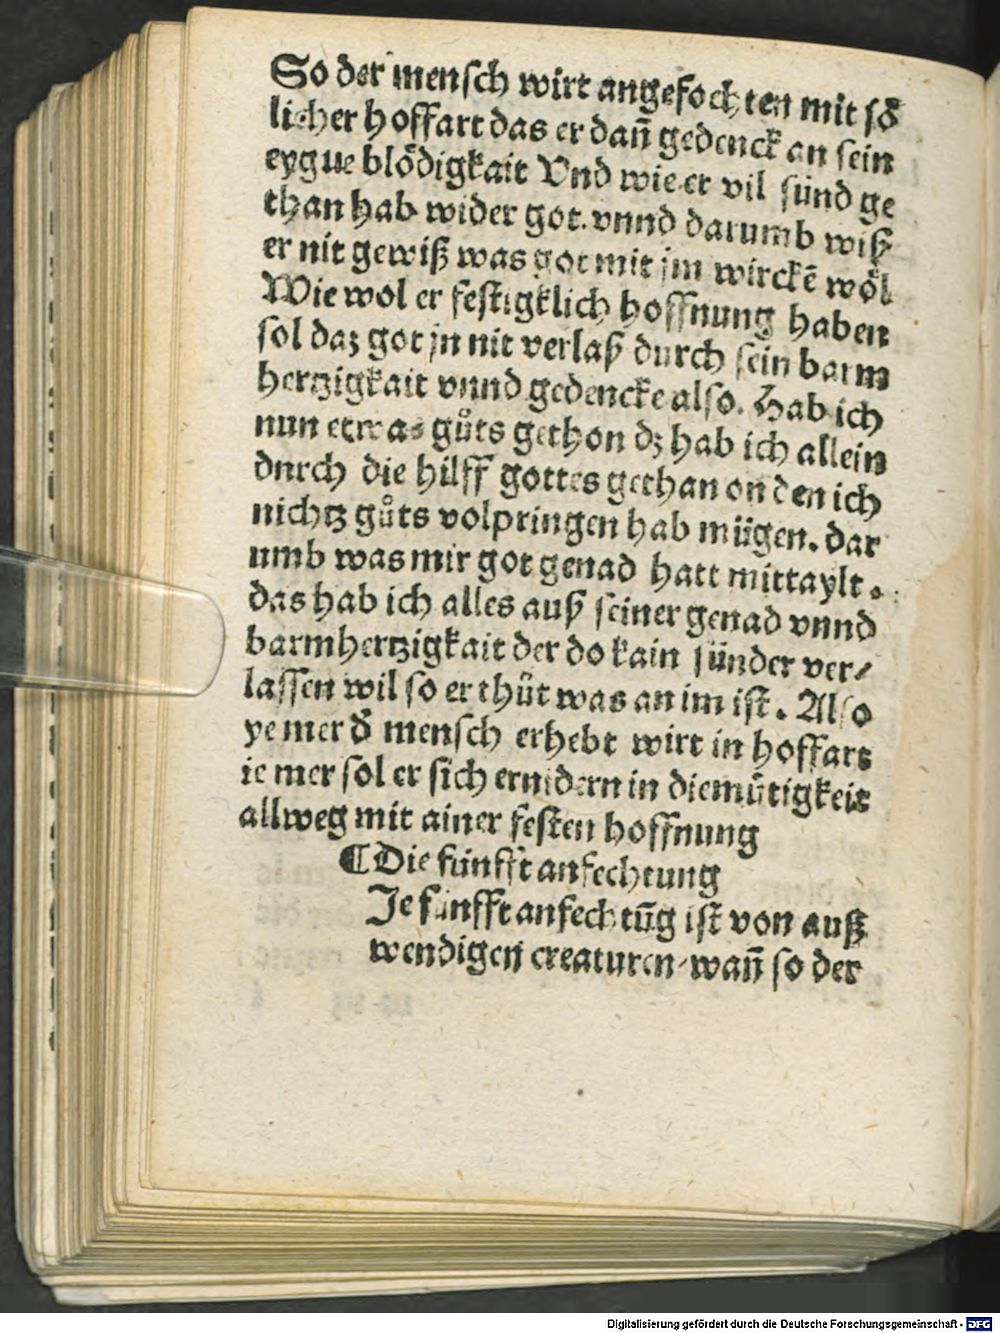 So der mensch wirt angefochten mit sö
licher hoffart das er dañ gedenck an sein
eygne blödigkait Vnd wie er vil sünd ge
than hab wider got. vnnd darumb wiß
er nit gewiß was got mit jm wirckē wöl
Wie wol er festigklich hoffnung haben
sol daz got jn nit verlaß durch sein barm
hertzigkait vnnd gedencke also. Hab ich
nun etwas gůts gethon dz hab ich allein
durch die hilff gottes gethan on den ich
nichtz gůts volpringen hab mügen. dar
umb was mir got genad hatt mittaylt.
das hab ich alles auß seiner genad vnnd
barmhertzigkait der do kain sünder ver⸗
lassen wil so er thůt was an im ist. Also
ye mer d̕ mensch erhebt wirt in hoffart
ie mer sol er sich ernidern in diemůtigkeit
allweg mit ainer festen hoffnung
¶Die fünfft anfechtung
Je fünfft anfechtūg ist von auß
wendigen creaturen⸗wañ so der
Digitalisierung gefördert durch die Deutsche Forschungsgemeinschaft - DFG